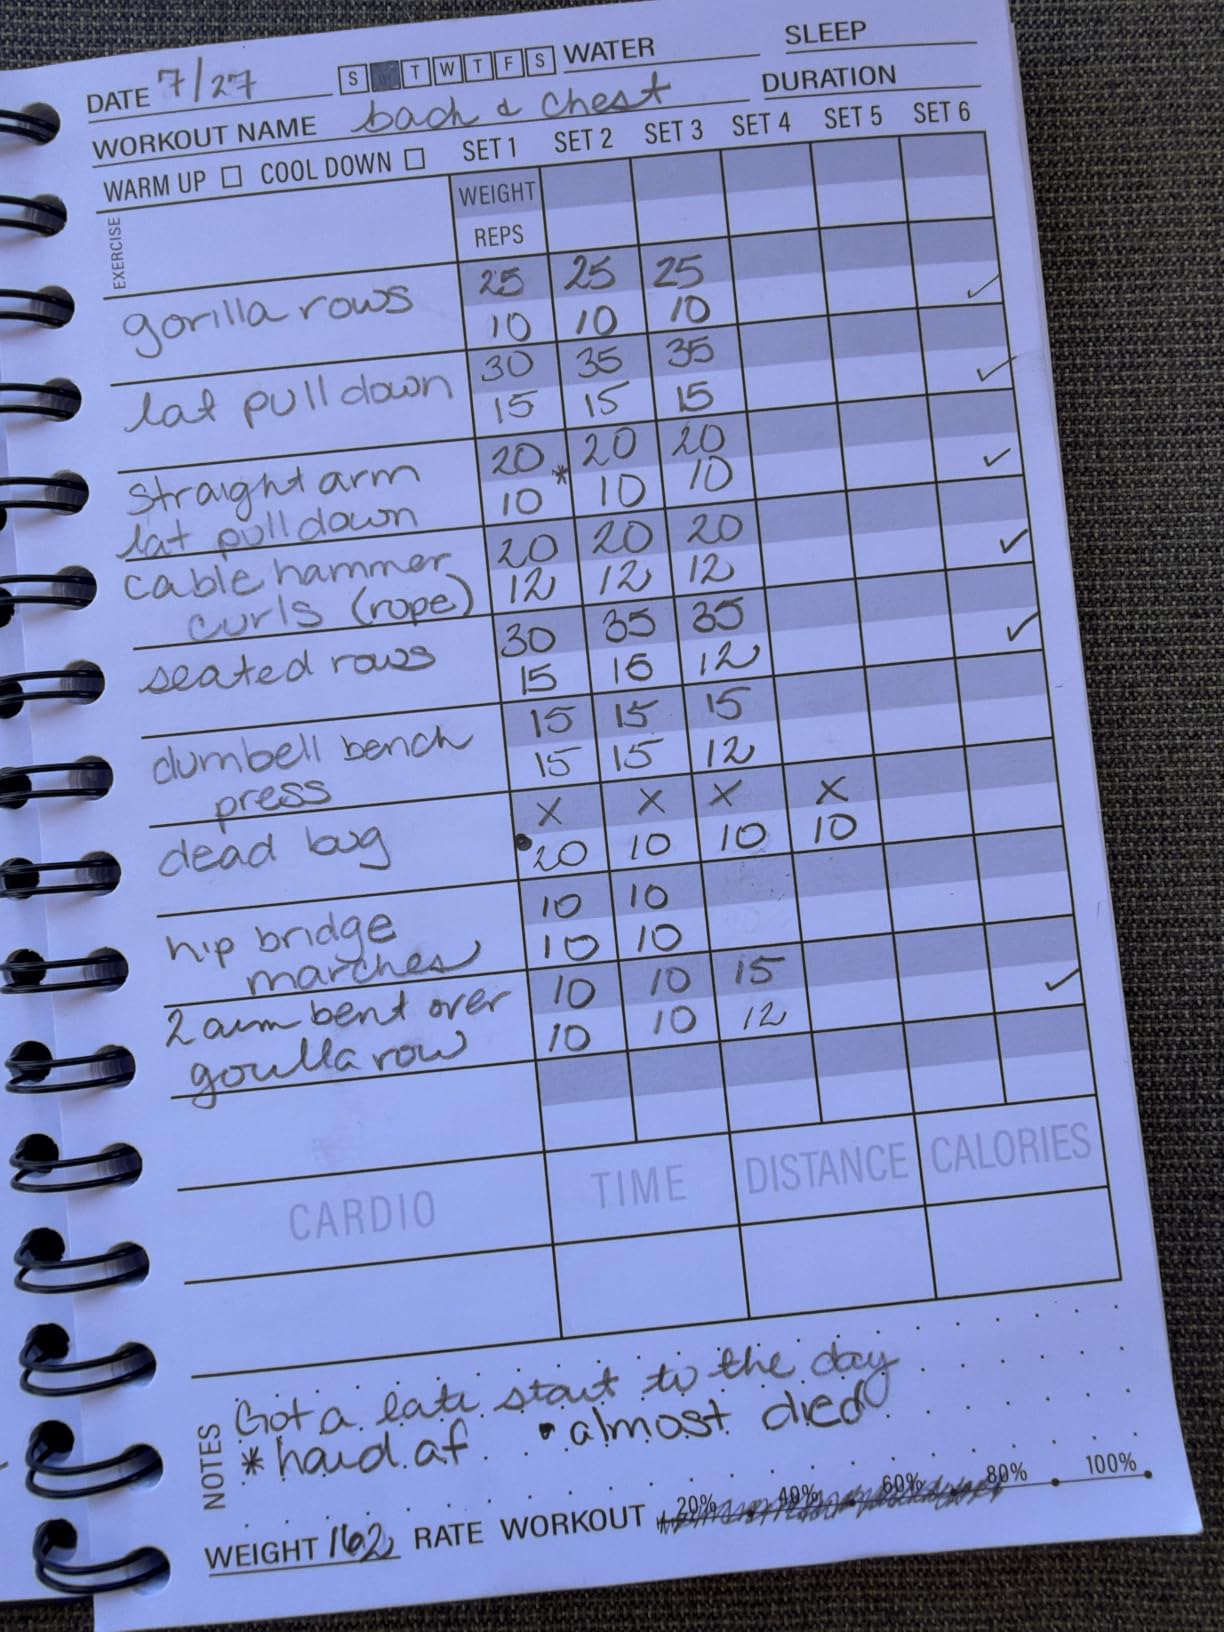 DATE 7/27 S T W T F S WATER SLEEP
WORKOUT NAME back & chest DURATION
WARM UP COOL DOWN SET 1 SET 2 SET 3 SET 4 SET 5 SET 6
EXERCISE WEIGHT
REPS
gorilla rows 25 25 25
10 10 10 ✓
lat pull down 30 35 35
15 15 15 ✓
straight arm 20 20 20
lat pull down 10 * 10 10 ✓
cable hammer 20 20 20
curls (rope) 12 12 12 ✓
seated rows 30 35 35
15 15 12 ✓
dumbell bench 15 15 15
press 15 15 12
dead bug X X X X
• 20 10 10 10
hip bridge 10 10
marches 10 10
2 arm bent over 10 10 15
gorilla row 10 10 12 ✓
CARDIO TIME DISTANCE CALORIES
NOTES
Got a late start to the day
* hard af • almost died
WEIGHT 162 RATE WORKOUT 20% 40% 60% 80% 100%